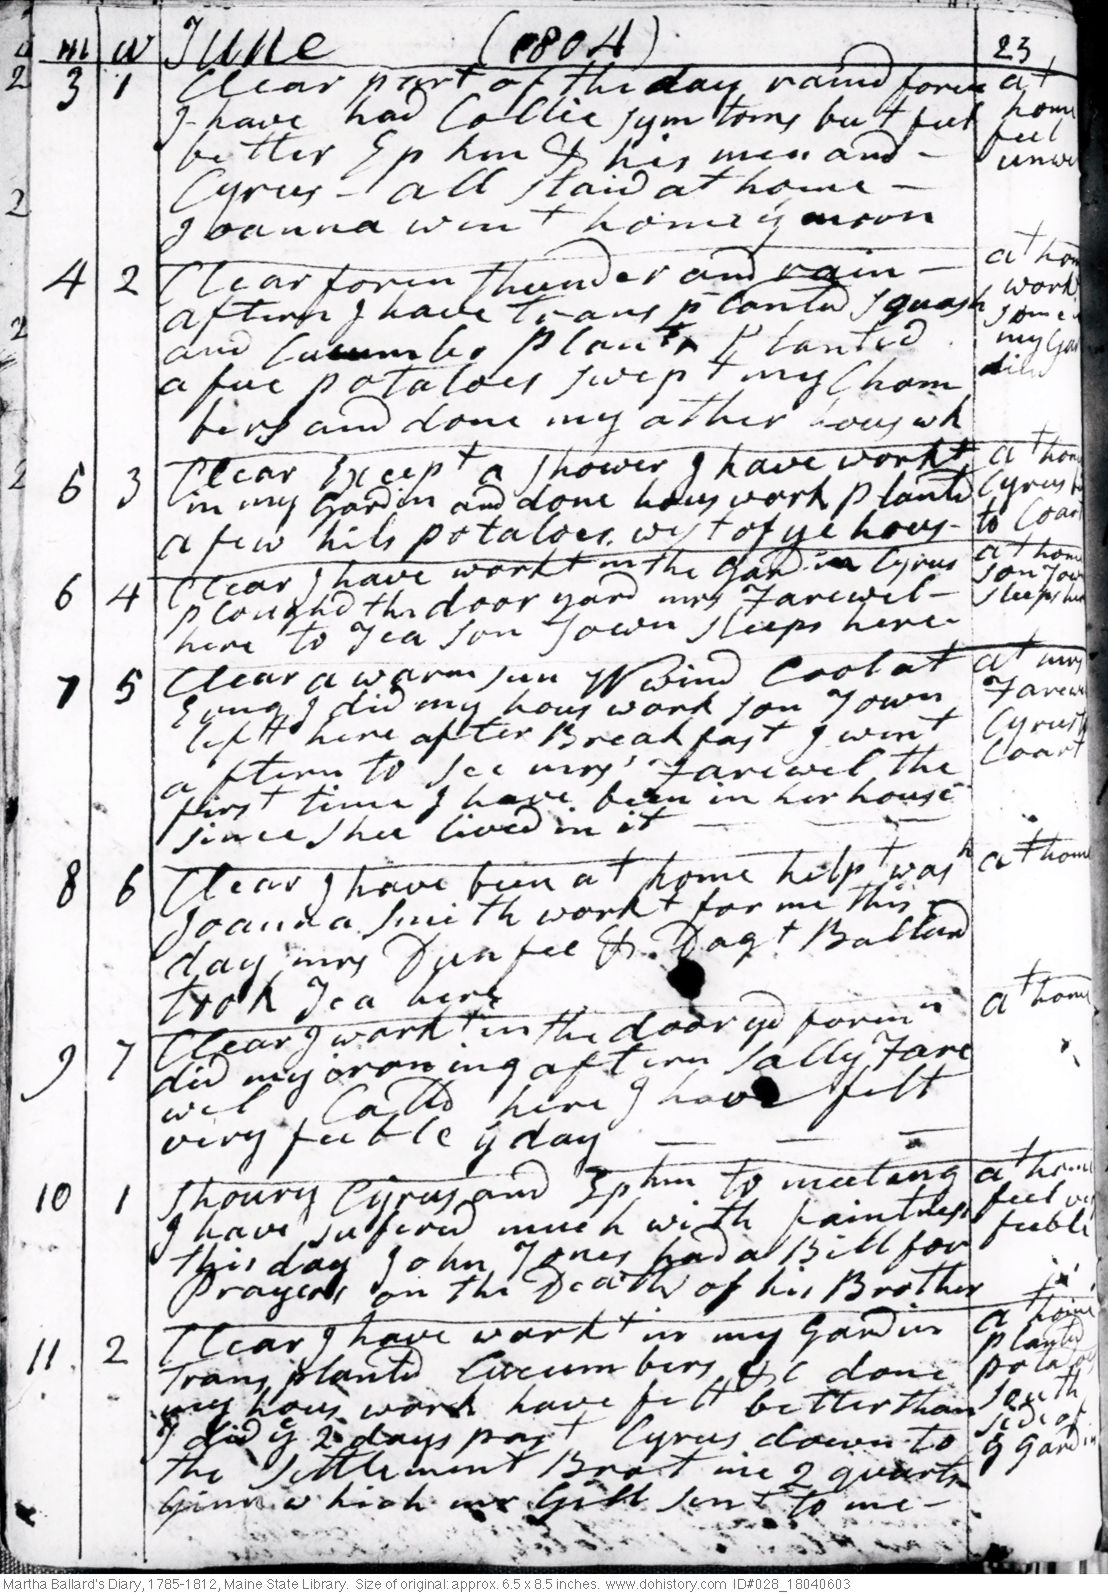 m w June (1804) 23
3 1 Clear part of the day raind foren
I have had Collic symtoms but feel
better Ephm & his men and -
Cyrus - all staid at home -
Joanna went home ÿ moon
at
home
feel
unwe
4 2 Clear foren thunder and rain -
aftern I have transplanted squash
and Cucumber Plants Planted
a fue potatoes swept my Cham
bers and done my other hous wk
at hom
work
some
my Gar
din
5 3 Clear Except a shower I have workt
in my Gardin and done hous work Plantd
a few hils potatoes west of ye hous -
at hom
Cyrus
to Coart
6 4 Clear I have workt in the Gardin Cyrus
ploughd the door yard mrs Farewel -
here to Tea son Town sleeps here -
at home
son Tow
sleeps here
7 5 Clear a warm sun W wind Cool at
Evng I did my hous work son Town
left here after Breakfast I went
aftern to see mrs Farewel the
first time I have been in her house
since shee lived in it -
at mrs
Farewe
Cyrus
Coart
8 6 Clear I have been at home helpt wash
Joanna Smith workt for me this
day mrs Dunfee & Dagt Ballard
took Tea here
at home
9 7 Clear I workt in the door yd foren
did my ironing aftern Sally Fare
wel Calld here I have felt
very feeble ÿ day
at home
10 1 Shoury Cyrus and Ephm to meeting
I have sufered much with faintness
this day John Jones had a Bill for
Prayers on the Death of his Brother
at home
feel very
feeble
11 2 Clear I have workt in my Gardin
transplantd Cucumbers &C done
my hous work have felt better than
I did ÿ 2 days past Cyrus down to
the settlement Brot me 2 quarts
Ginn which mr Gill sent to me -
at home
plantd
potatoes
south
side of
ÿ Gardin
2
2
2
2
Martha Ballard's Diary, 1785-1812, Maine State Library. Size of original:approx. 6.5 x 8.5 inches. www.dohistory.com ID#028_18040603